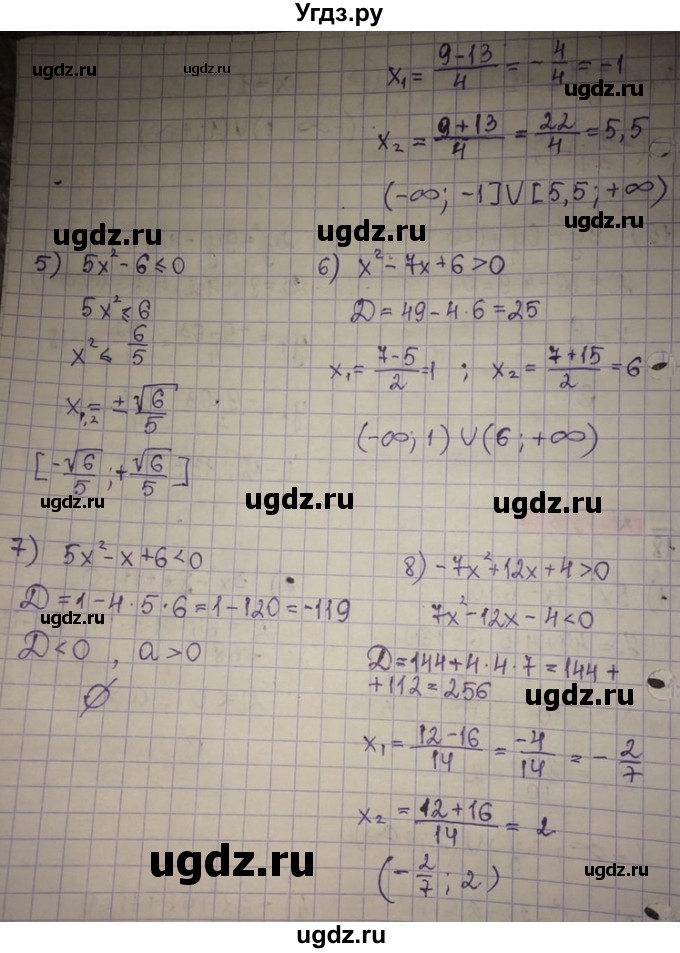 Угдз.ру
ugdz.ru ugdz.ru
x₁ = (9-13)/4 = -4/4 = -1
ugdz.ru
x₂ = (9+13)/4 = 22/4 = 5,5
ugdz.ru
(-∞; -1] ∪ [5,5; +∞)
ugdz.ru ugdz.ru
5) 5x² - 6 ≤ 0
5x² ≤ 6
x² ≤ 6/5
x₁,₂ = ±√6/5
[-√6/5 ; +√6/5]
ugdz.ru
6) x² - 7x + 6 > 0
D = 49 - 4·6 = 25
x₁ = (7-5)/2 = 1 ; x₂ = (7+15)/2 = 6
ugdz.ru
(-∞; 1) ∪ (6; +∞)
ugdz.ru ugdz.ru
7) 5x² - x + 6 < 0
D = 1 - 4·5·6 = 1 - 120 = -119
ugdz.ru
D < 0 , a > 0
∅
8) -7x² + 12x + 4 > 0
7x² - 12x - 4 < 0
ugdz.ru
D = 144 + 4·4·7 = 144 +
+ 112 = 256
ugdz.ru
x₁ = (12-16)/14 = -4/14 = -2/7
x₂ = (12+16)/14 = 2
(-2/7 ; 2)
ugdz.ru ugdz.ru ugdz.ru
ugdz.ru